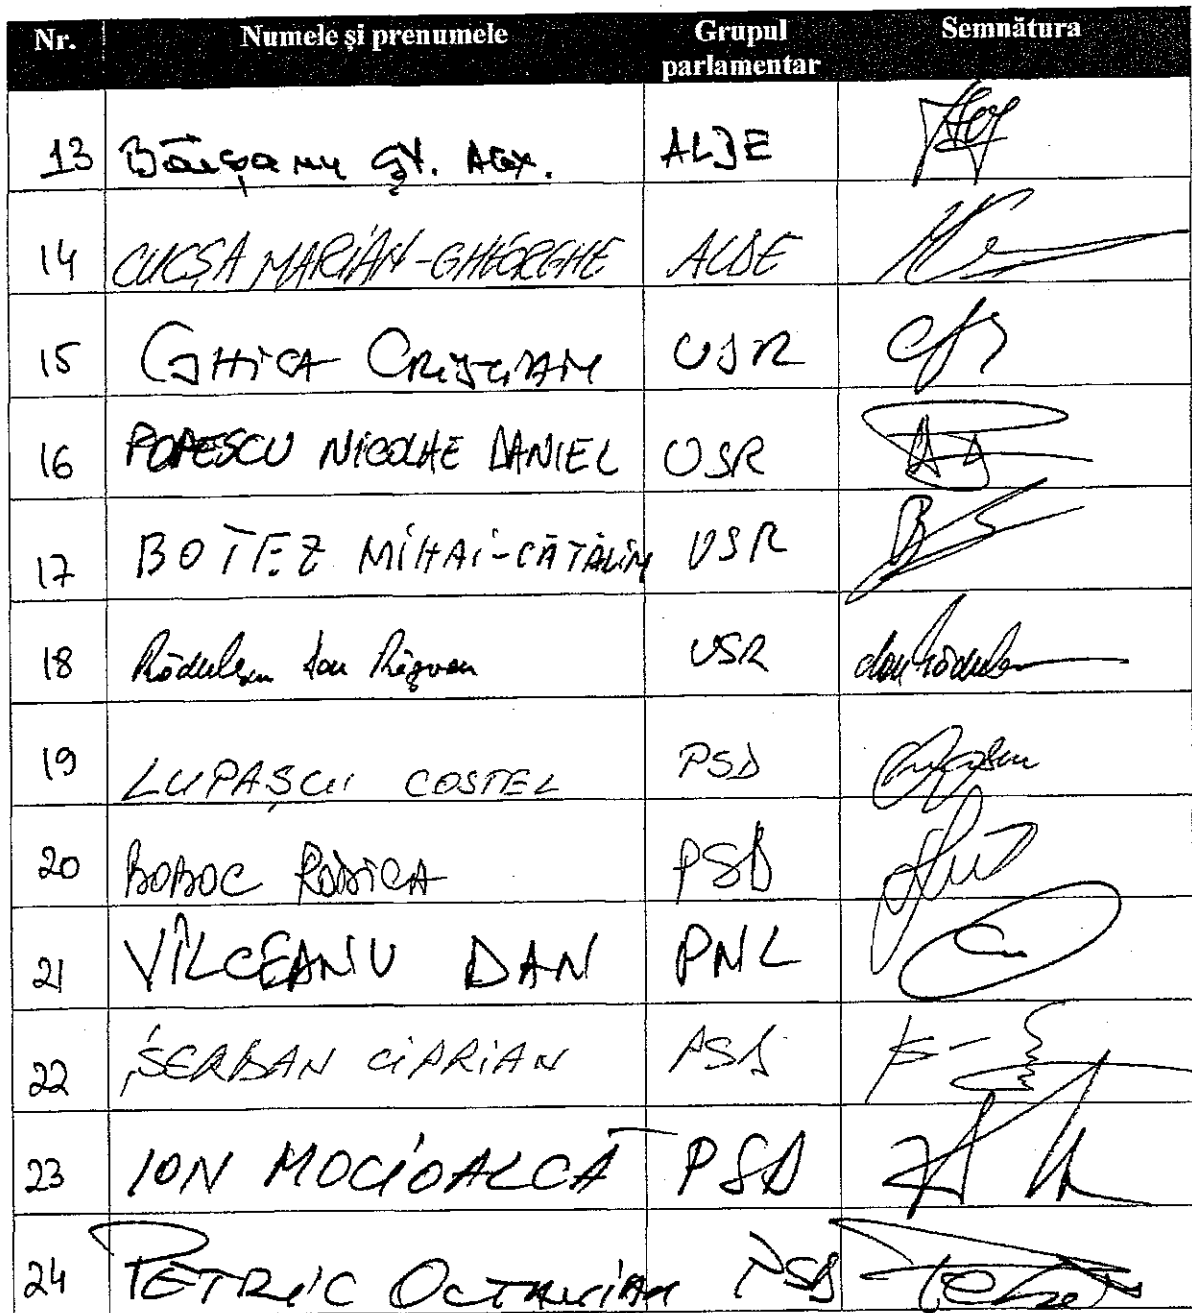 Nr. Numele și prenumele Grupul parlamentar Semnătura
13 Băișanu Șt. Alex. ALDE
14 CUCȘA MARIAN-GHEORGHE ALDE
15 GHICA CRISTIAN USR
16 POPESCU NICOLAE DANIEL USR
17 BOTEZ MIHAI-CĂTĂLIN USR
18 Rădulescu Dan Răzvan USR
19 LUPAȘCU COSTEL PSD
20 BOBOC RODICA PSD
21 VÎLCEANU DAN PNL
22 ȘERBAN CIPRIAN PSD
23 ION MOCIOALCĂ PSD
24 PETRIC OCTAVIAN PSD